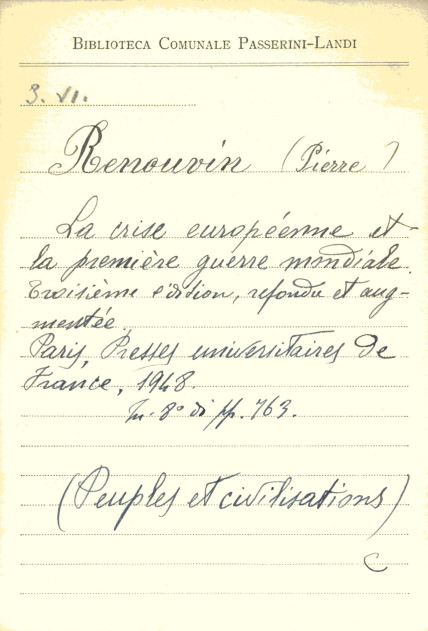 BIBLIOTECA COMUNALE PASSERINI-LANDI
3. VI.
Renouvin (Pierre)
La crise européenne et
la première guerre mondiale.
Troisième édition, refondu et aug-
mentée.
Paris, Presses universitaires de
France, 1948.
In. 8° di pp. 763.
(Peuples et civilisations)
C